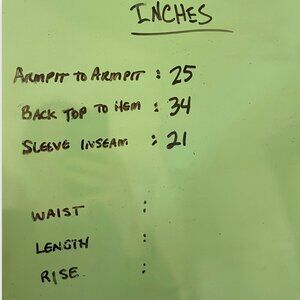 INCHES
ARMPIT TO ARMPIT : 25
BACK TOP TO HEM : 34
SLEEVE INSEAM : 21
WAIST :
LENGTH :
RISE :